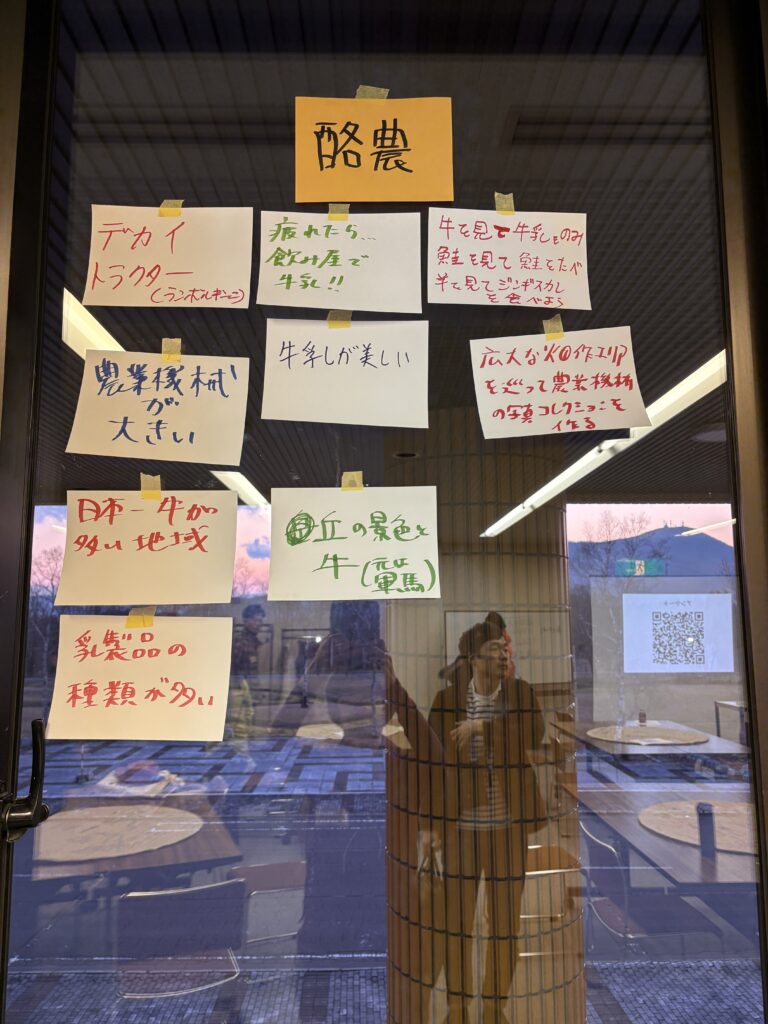 酪農
デカイ
トラクター
(ランボルギーニ)
疲れたら…
飲み屋で
牛乳!!
牛を見て牛乳をのみ
鮭を見て鮭をたべ
羊を見てジンギスカン
を食べよう
農業機械
が
大きい
牛乳しが美しい
広大な畑作エリア
を巡って農業機械
の写真コレクションを
作る
日本一牛が
多い地域
丘の景色と
牛(元は軍馬)
乳製品の
種類が多い
アンケート